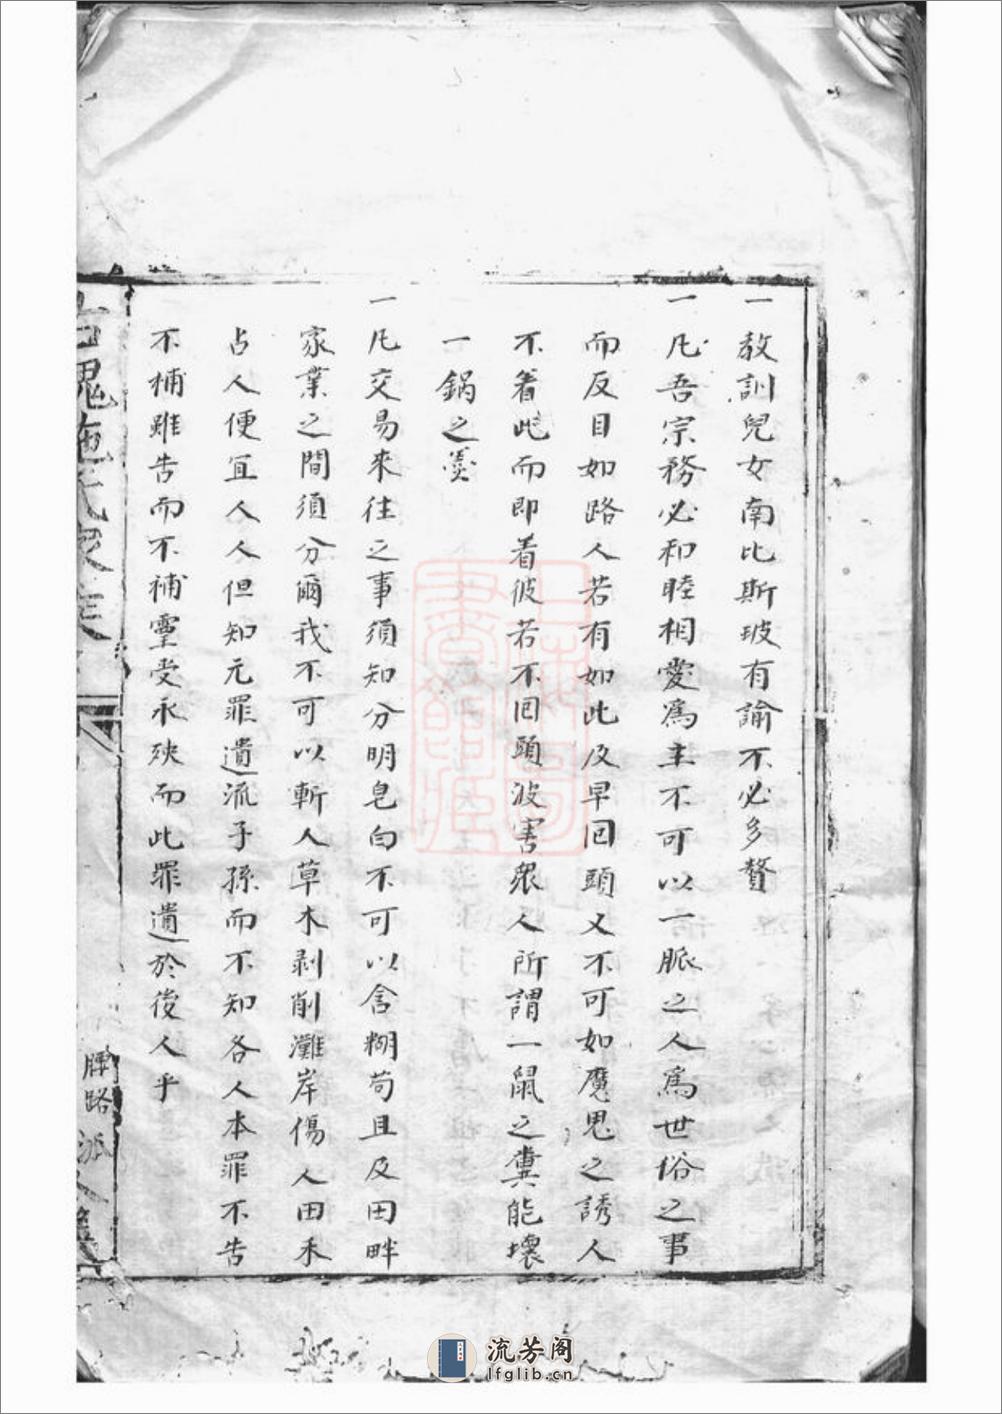 一教訓兒女南比斯玻有諭不必多贅
一凡吾宗務必和睦相愛為主不可以一脈之人為世俗之事
而反目如路人若有如此及早囘頭又不可如魔鬼之誘人
不着此而即着彼若不囘頭波害衆人所謂一鼠之糞能壞
一鍋之羹
一凡交易來往之事須知分明皂白不可以含糊苟且及田畔
家業之間須分爾我不可以斬人草木剥削灘岸傷人田禾
占人便冝人人但知元罪遺流子孫而不知各人本罪不告
不補雖告而不補靈受永殃而此罪遺於後人乎
氏家
脾路派
流芳阁
lfglib.cn